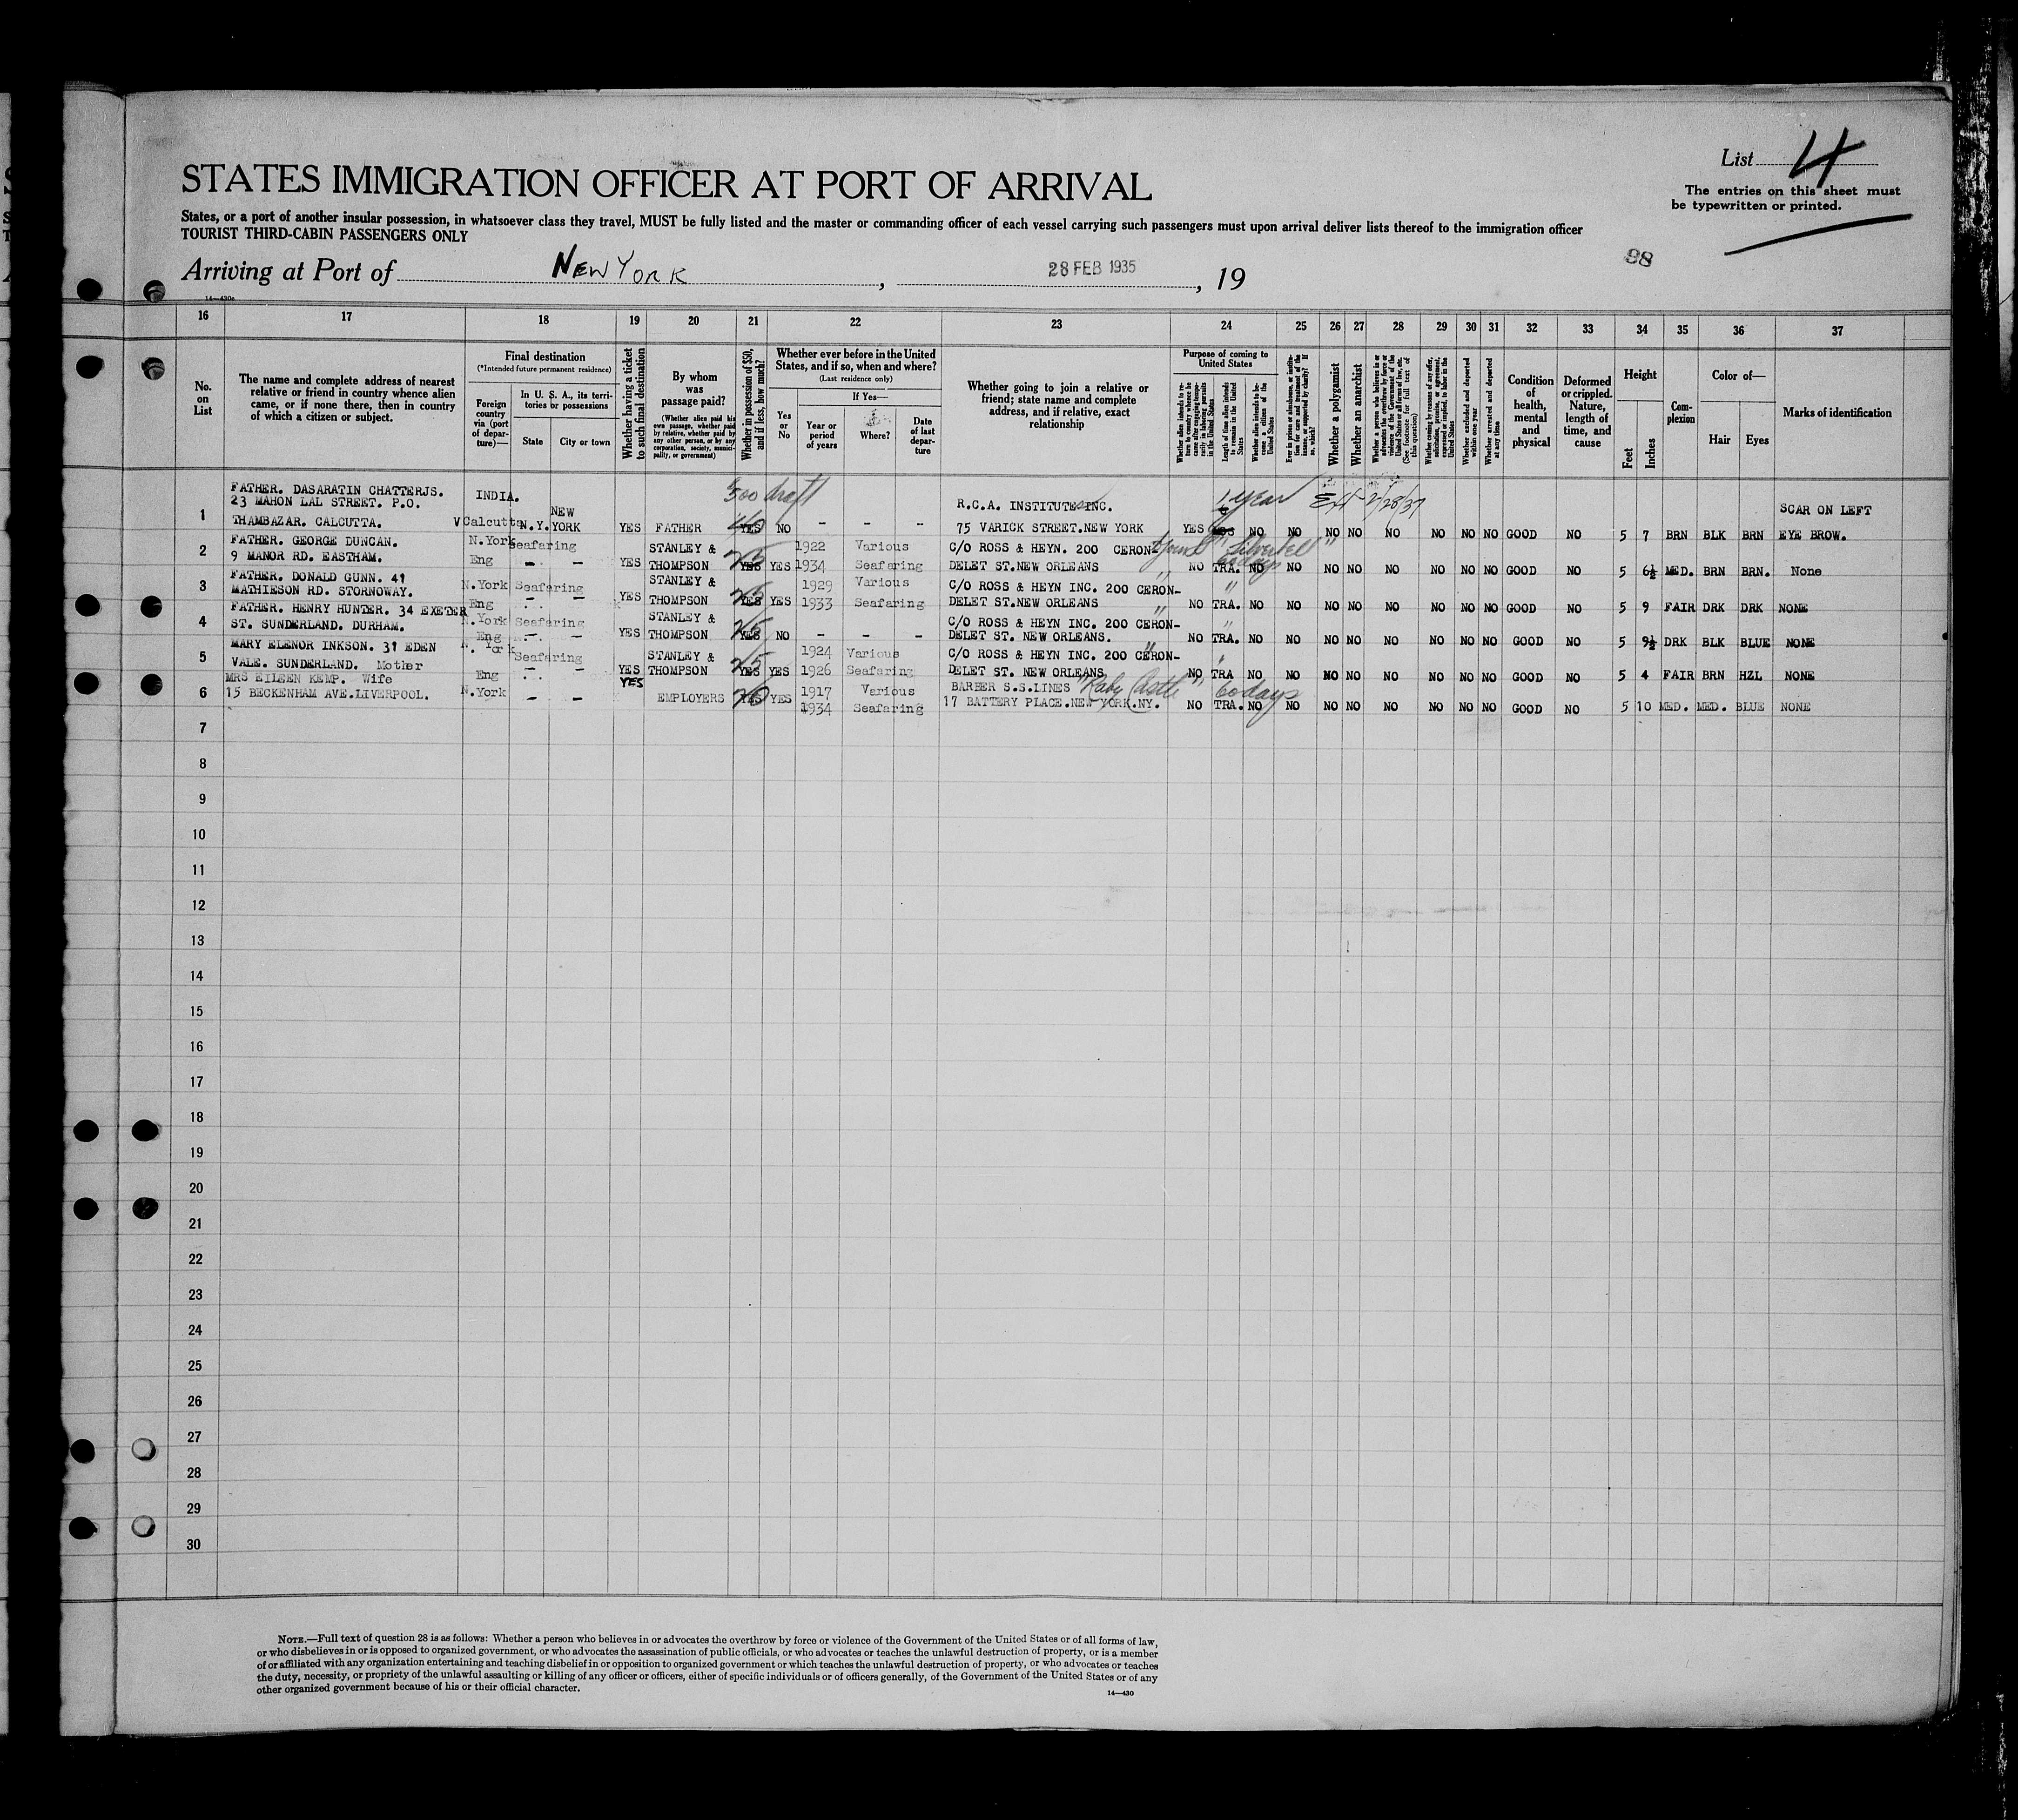 List 4
The entries on this sheet must
be typewritten or printed.
STATES IMMIGRATION OFFICER AT PORT OF ARRIVAL
States, or a port of another insular possession, in whatsoever class they travel, MUST be fully listed and the master or commanding officer of each vessel carrying such passengers must upon arrival deliver lists thereof to the immigration officer
TOURIST THIRD-CABIN PASSENGERS ONLY
98
Arriving at Port of NEW YORK, 28 FEB 1935, 19
14—430a
16 17 18 19 20 21 22 23 24 25 26 27 28 29 30 31 32 33 34 35 36 37
No. on List
The name and complete address of nearest
relative or friend in country whence alien
came, or if none there, then in country
of which a citizen or subject.
Final destination
(*Intended future permanent residence)
Foreign country via (port of departure)—
In U. S. A., its territories or possessions
State City or town
Whether having a ticket to such final destination
By whom was passage paid?
(Whether alien paid his own passage, whether paid by relative, whether paid by any other person, or by any corporation, society, municipality, or government)
Whether in possession of $50, and if less, how much?
Whether ever before in the United
States, and if so, when and where?
(Last residence only)
Yes or No
If Yes—
Year or period of years
Where?
Date of last departure
Whether going to join a relative or
friend; state name and complete
address, and if relative, exact
relationship
Purpose of coming to United States
Whether alien intends to return to country whence he came after engaging temporarily in laboring pursuits in the United States
Length of time alien intends to remain in the United States
Whether alien intends to become a citizen of the United States
Ever in prison or almshouse, or institution for care and treatment of the insane, or supported by charity? If so, which?
Whether a polygamist
Whether an anarchist
Whether a person who believes in or advocates the overthrow by force or violence of the Government of the United States or all forms of law, etc. (See footnote for full text of this question)
Whether coming by reasons of any offer, solicitation, promise, or agreement, expressed or implied, to labor in the United States
Whether excluded and deported within one year
Whether arrested and deported at any time
Condition of health, mental and physical
Deformed or crippled. Nature, length of time, and cause
Height
Feet Inches
Complexion
Color of—
Hair Eyes
Marks of identification
FATHER. DASARATIN CHATTERJS. INDIA. $500 draft R.C.A. INSTITUTE INC. 1 year Ext 2/28/37
23 MAHON LAL STREET. P.O. NEW SCAR ON LEFT
1 THAMBAZAR. CALCUTTA. V Calcutta N.Y. YORK YES FATHER 40 YES NO – – – 75 VARICK STREET.NEW YORK YES NO NO NO NO NO NO NO NO GOOD NO 5 7 BRN BLK BRN EYE BROW.
FATHER. GEORGE DUNCAN. N.York Seafaring STANLEY & 1922 Various C/O ROSS & HEYN. 200 CERON-
2 9 MANOR RD. EASTHAM. Eng – – YES THOMPSON 25 YES YES 1934 Seafaring DELET ST.NEW ORLEANS NO TRA. 60 days NO NO NO NO NO NO NO NO GOOD NO 5 6½ MED. BRN BRN. None
FATHER. DONALD GUNN. 41 N.York Seafaring STANLEY & 1929 Various C/O ROSS & HEYN INC. 200 CERON- "
3 MATHIESON RD. STORNOWAY. Eng – – YES THOMPSON 25 YES YES 1933 Seafaring DELET ST.NEW ORLEANS NO TRA. NO NO NO NO NO NO NO NO GOOD NO 5 9 FAIR DRK DRK NONE
FATHER. HENRY HUNTER. 34 EXETER N.York Seafaring STANLEY & C/O ROSS & HEYN INC. 200 CERON- "
4 ST. SUNDERLAND. DURHAM. Eng – – YES THOMPSON 25 YES NO – – – DELET ST. NEW ORLEANS. NO TRA. NO NO NO NO NO NO NO NO GOOD NO 5 9½ DRK BLK BLUE NONE
MARY ELENOR INKSON. 31 EDEN N. York Seafaring STANLEY & 1924 Various C/O ROSS & HEYN INC. 200 CERON- "
5 VALE. SUNDERLAND. Mother Eng – – YES THOMPSON 25 YES YES 1926 Seafaring DELET ST. NEW ORLEANS. NO TRA NO NO NO NO NO NO NO NO GOOD NO 5 4 FAIR BRN HZL NONE
MRS EILEEN KEMP. Wife YES 1917 Various BARBER S.S.LINES "Raby Castle" 60 days
6 15 BECKENHAM AVE.LIVERPOOL. N.York – – EMPLOYERS YES YES 1934 Seafaring 17 BATTERY PLACE.NEW YORK.NY. NO TRA. NO NO NO NO NO NO NO NO GOOD NO 5 10 MED. MED. BLUE NONE
7
8
9
10
11
12
13
14
15
16
17
18
19
20
21
22
23
24
25
26
27
28
29
30
NOTE.—Full text of question 28 is as follows: Whether a person who believes in or advocates the overthrow by force or violence of the Government of the United States or of all forms of law,
or who disbelieves in or is opposed to organized government, or who advocates the assassination of public officials, or who advocates or teaches the unlawful destruction of property, or is a member
of or affiliated with any organization entertaining and teaching disbelief in or opposition to organized government or which teaches the unlawful destruction of property, or who advocates or teaches
the duty, necessity, or propriety of the unlawful assaulting or killing of any officer or officers, either of specific individuals or of officers generally, of the Government of the United States or of any
other organized government because of his or their official character.
14—430